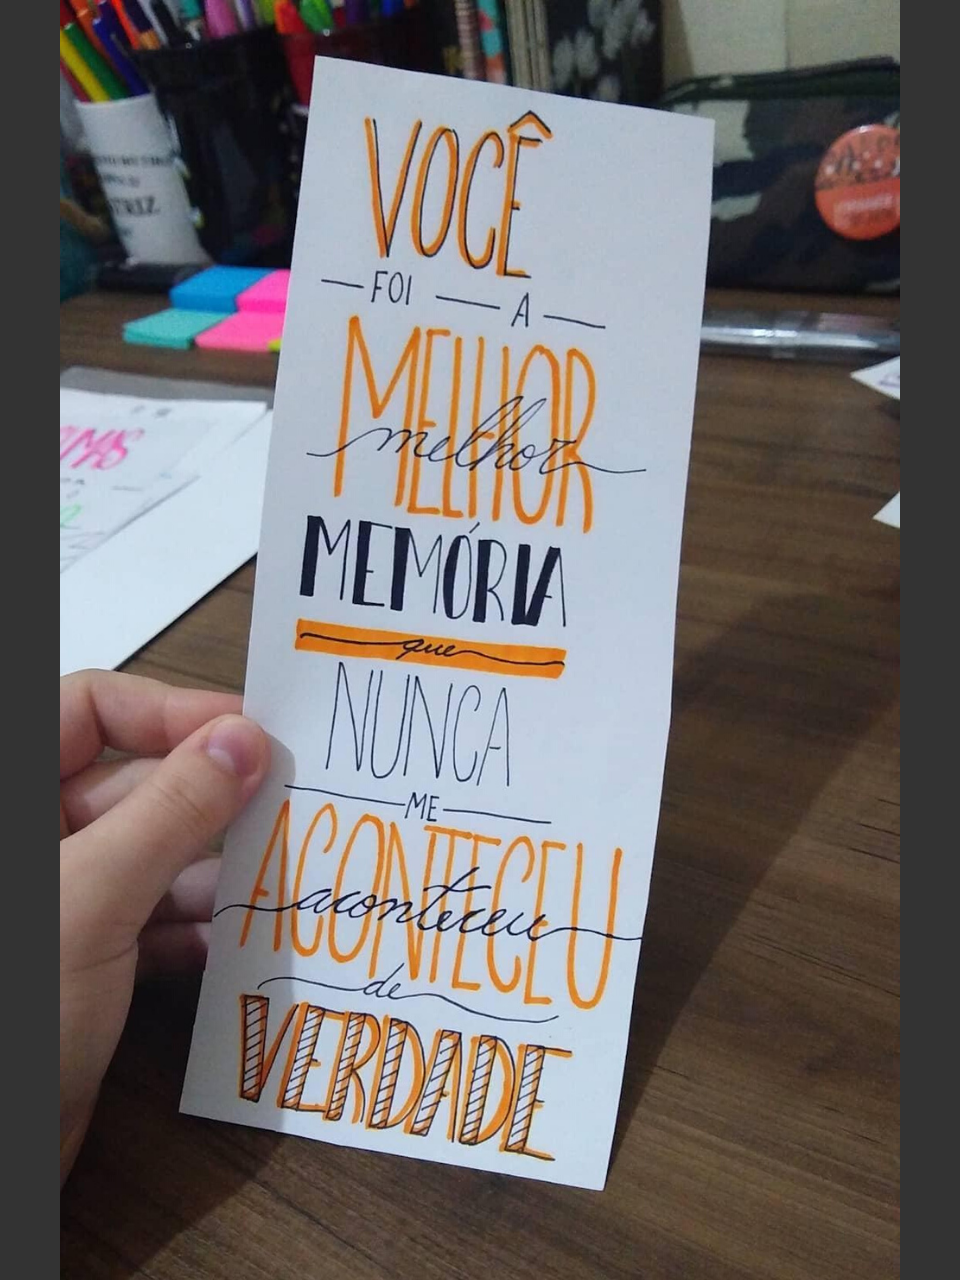 VOCÊ
FOI A
MELHOR
melhor
MEMÓRIA
que
NUNCA
ME
ACONTECEU
aconteceu
de
VERDADE